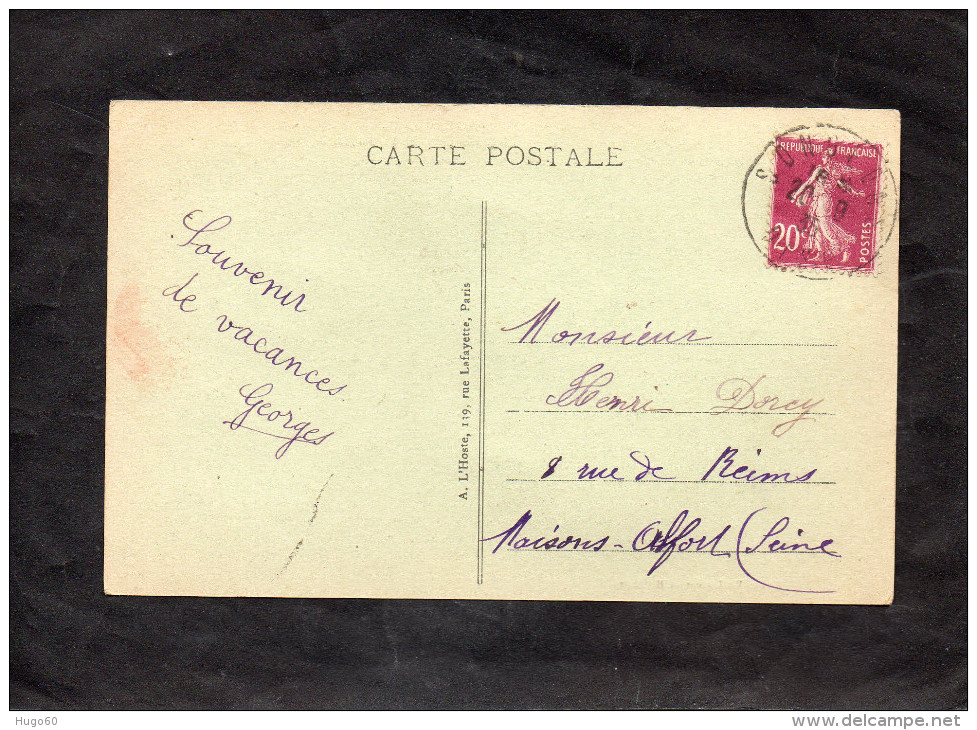 CARTE POSTALE
REPUBLIQUE FRANÇAISE
20c
POSTES
Souvenir
de vacances
Georges
A. L'Hoste, 139, rue Lafayette, Paris
Monsieur
Henri Dorey
8 rue de Reims
Maisons-Alfort (Seine
Hugo60
www.delcampe.net